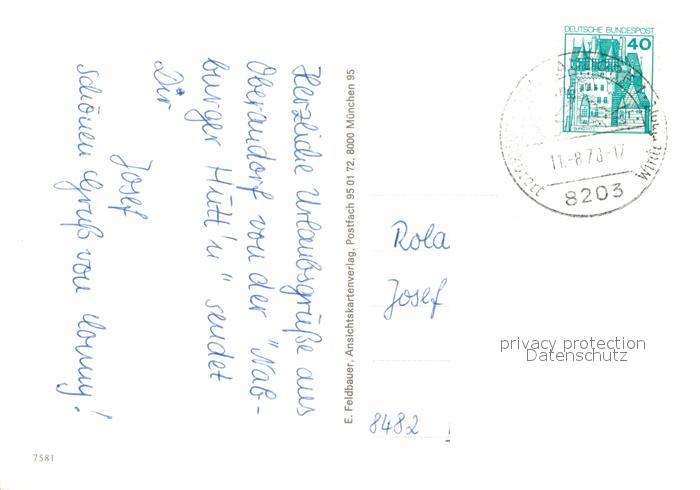 Herzliche Urlaubsgrüße aus
Oberaudorf von der "Nab-
burger Hütt'n" sendet
Dir
Josef
schönen Gruß von Conny!
E. Feldbauer, Ansichtskartenverlag, Postfach 95 01 72, 8000 München 95
DEUTSCHE BUNDESPOST
40
11.-8.78.-17
8203
Rola
Josef
8482
privacy protection
Datenschutz
7581